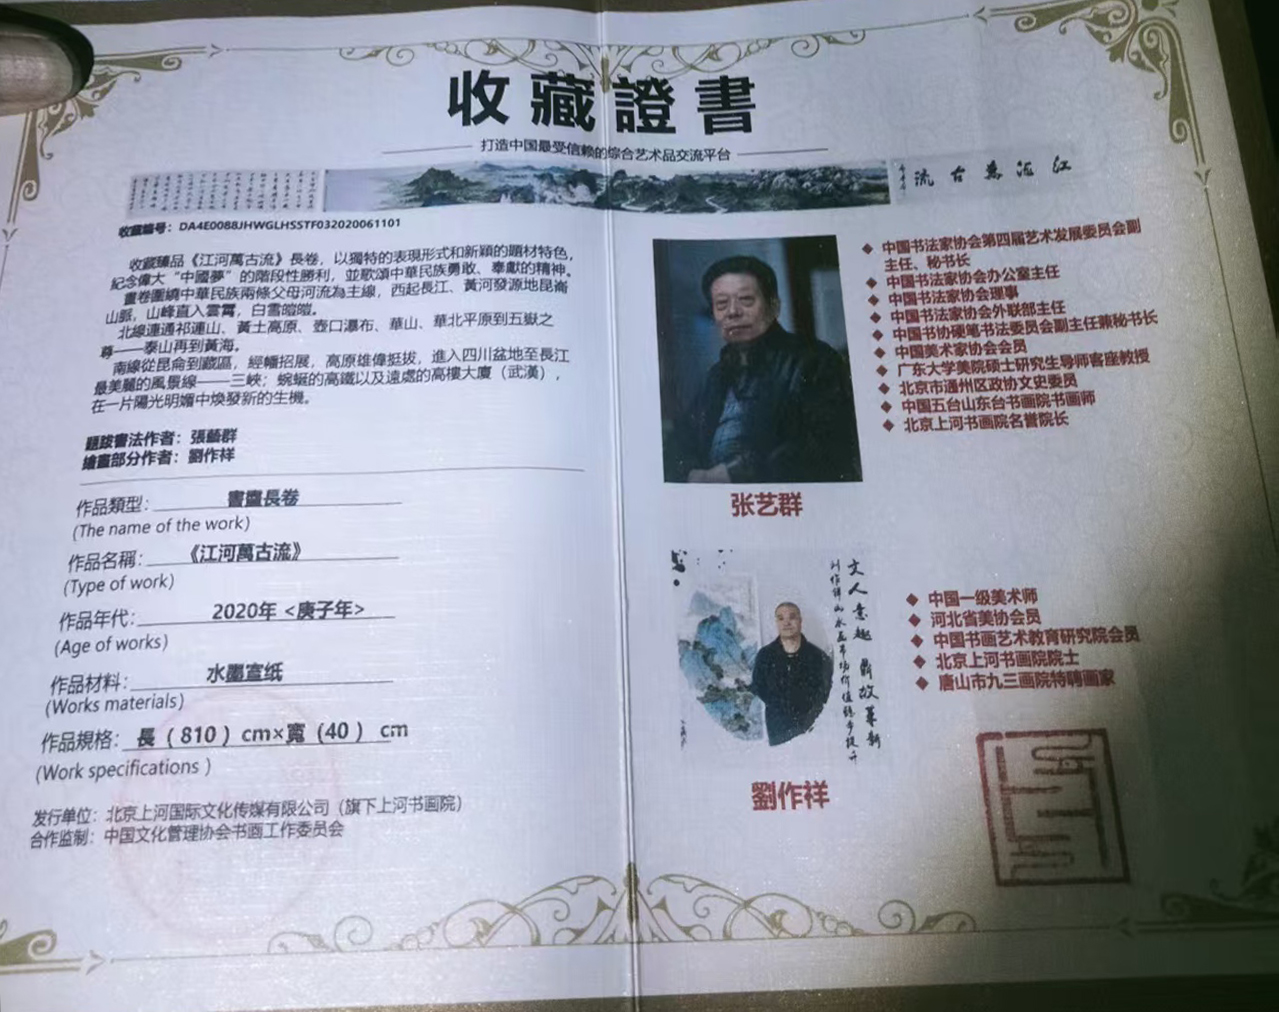 收藏證書
打造中国最受信赖的综合艺术品交流平台
江河萬古流
收藏编号：DA4E0088JHWGLHSSTF032020061101
收藏臻品《江河萬古流》長卷，以獨特的表現形式和新穎的題材特色，
紀念偉大“中國夢”的階段性勝利，並歌頌中華民族勇敢、奉獻的精神。
畫卷圍繞中華民族兩條父母河流為主線，西起長江、黃河發源地昆崙
山脈，山峰直入雲霄，白雪皚皚。
北線連通祁連山、黃土高原、壺口瀑布、華山、華北平原到五嶽之
尊——泰山再到黃海。
南線從昆侖到藏區，經幡招展，高原雄偉挺拔，進入四川盆地至長江
最美麗的風景線——三峽；蜿蜒的高鐵以及遠處的高樓大廈（武漢），
在一片陽光明媚中煥發新的生機。
題跋書法作者：張藝群
繪畫部分作者：劉作祥
作品類型：書畫長卷
(The name of the work)
作品名稱：《江河萬古流》
(Type of work)
作品年代：2020年 <庚子年>
(Age of works)
作品材料：水墨宣纸
(Works materials)
作品規格：長（810）cm×寬（40）cm
(Work specifications )
发行单位：北京上河国际文化传媒有限公司（旗下上河书画院）
合作监制：中国文化管理协会书画工作委员会
中国书法家协会第四届艺术发展委员会副
主任、秘书长
中国书法家协会办公室主任
中国书法家协会理事
中国书法家协会外联部主任
中国书协硬笔书法委员会副主任兼秘书长
中国美术家协会会员
广东大学美院硕士研究生导师客座教授
北京市通州区政协文史委员
中国五台山东台书画院书画师
北京上河书画院名誉院长
张艺群
文人意趣 鼎故革新
刘作祥山水画市场价值稳步提升
中国一级美术师
河北省美协会员
中国书画艺术教育研究院会员
北京上河书画院院士
唐山市九三画院特聘画家
劉作祥